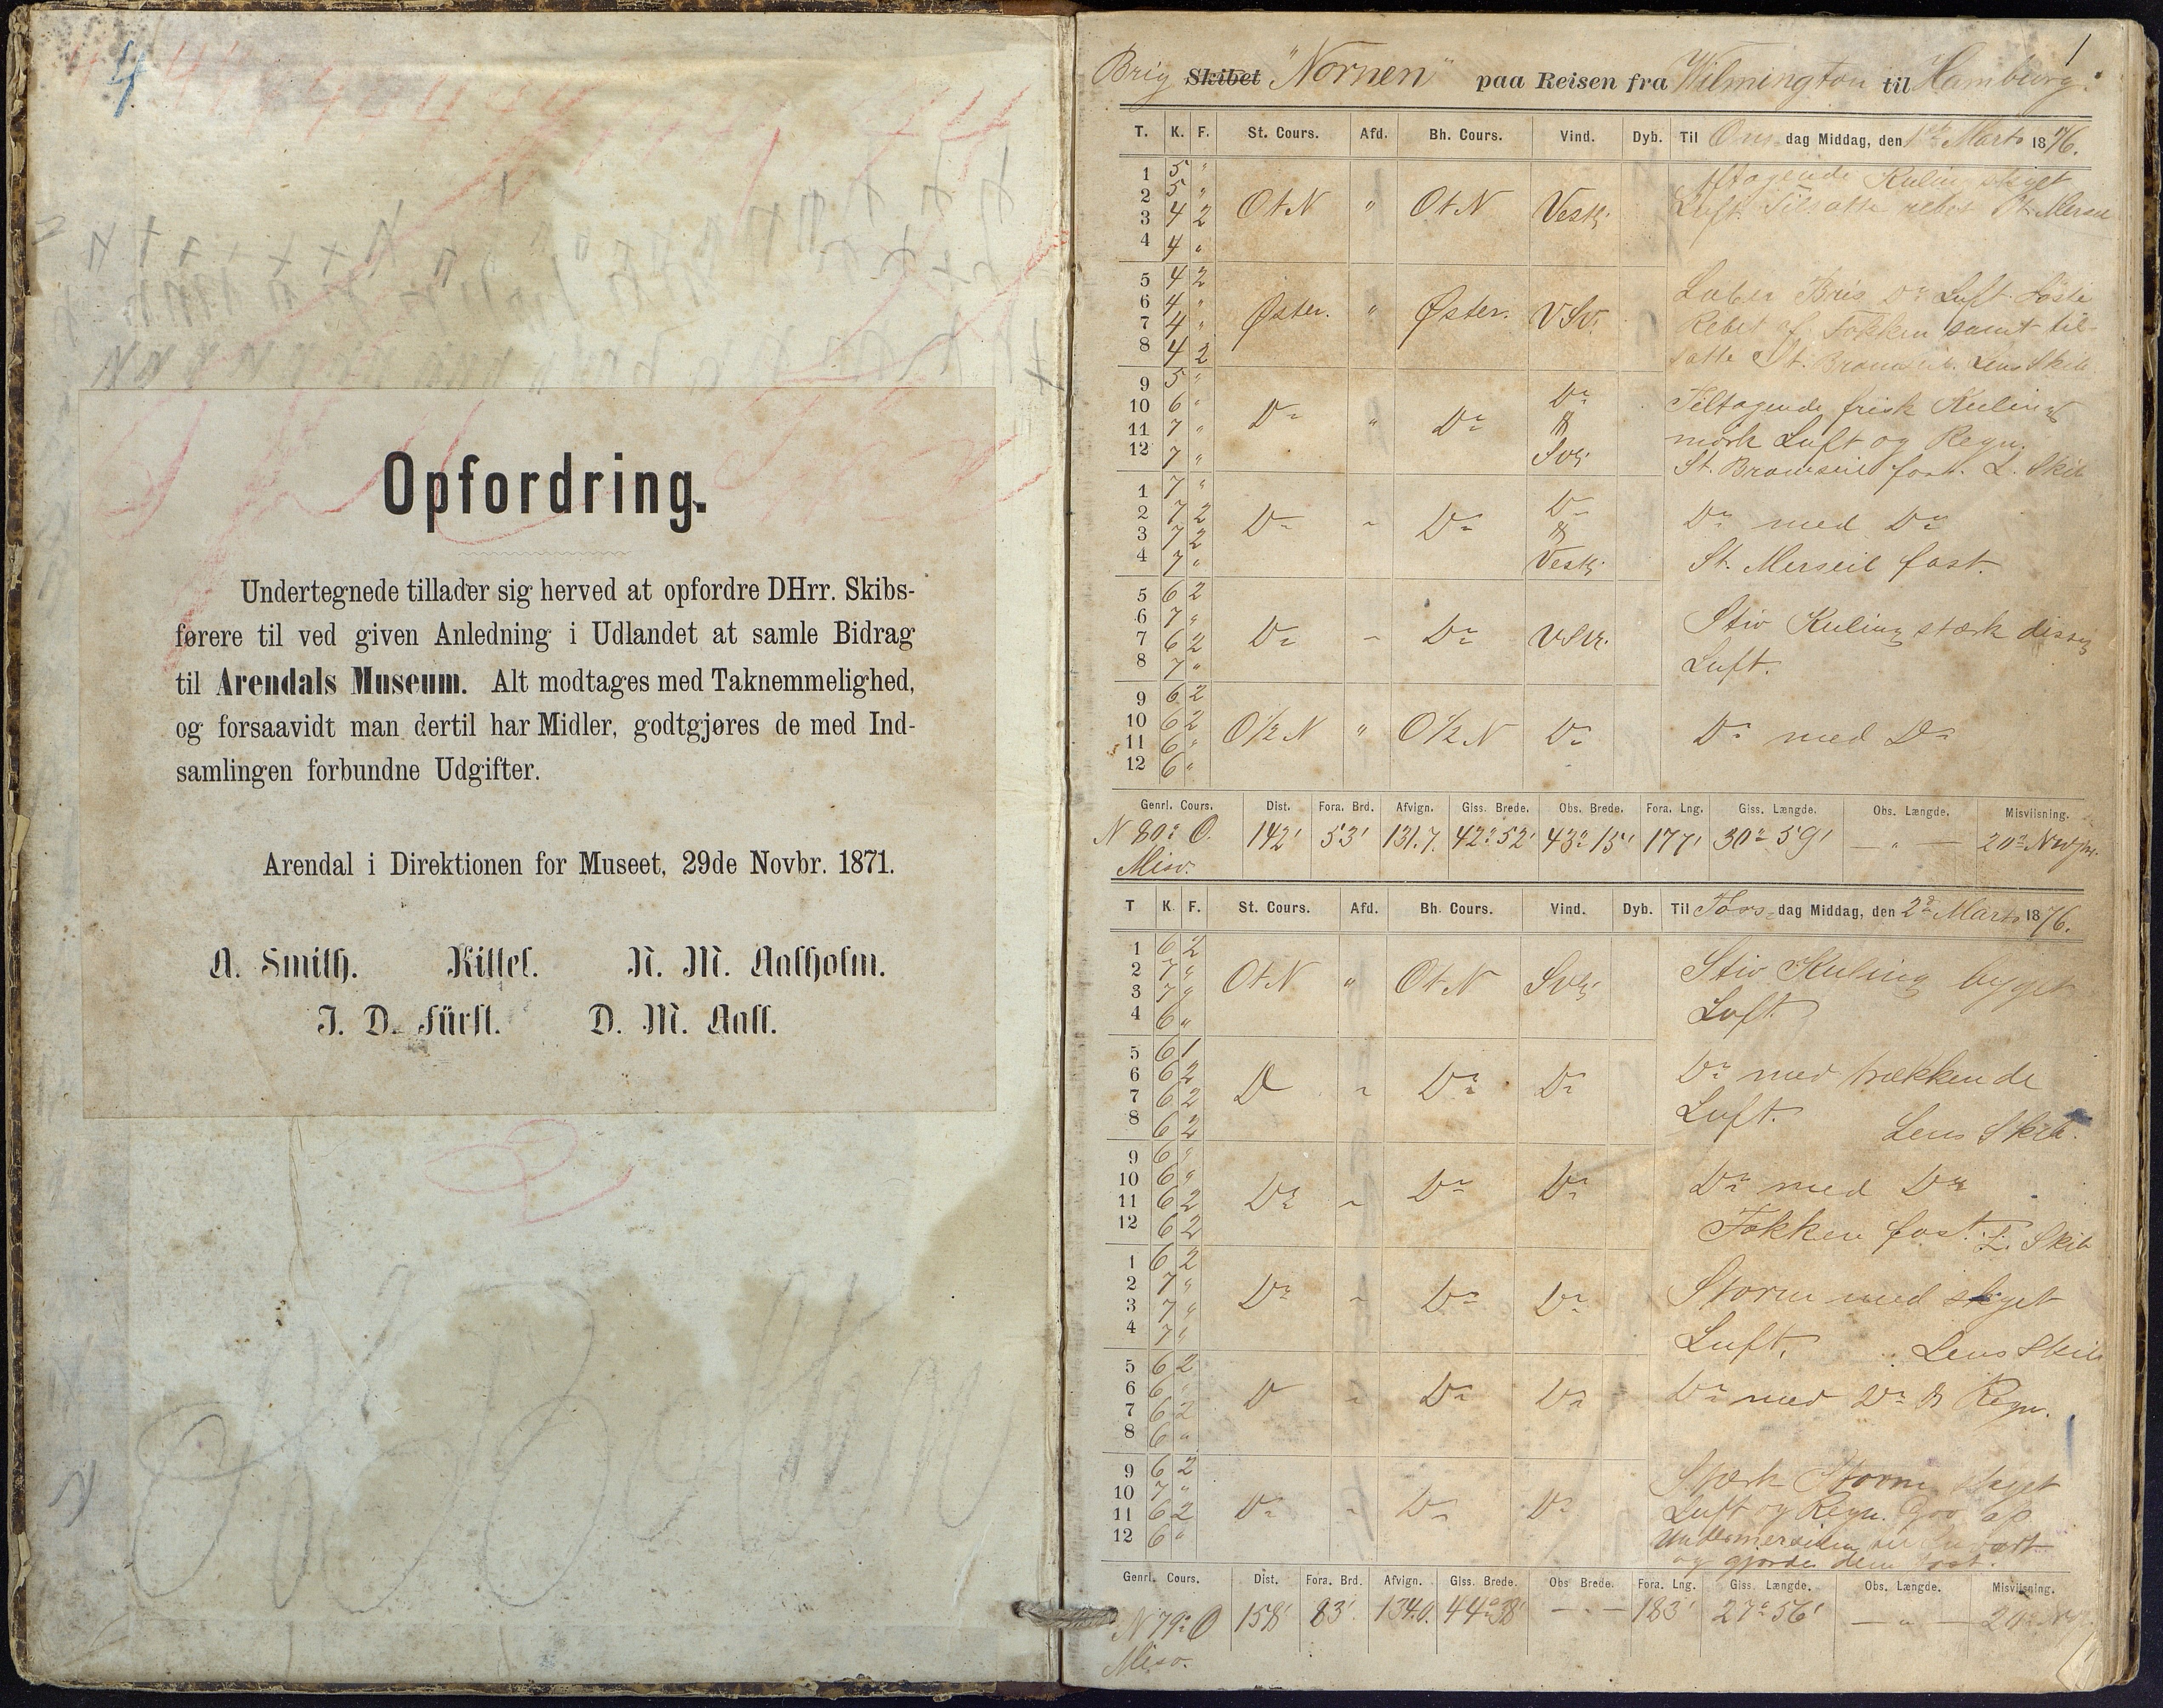 4
Opfordring.
Undertegnede tillader sig herved at opfordre DHrr. Skibs-
førere til ved given Anledning i Udlandet at samle Bidrag
til Arendals Museum. Alt modtages med Taknemmelighed,
og forsaavidt man dertil har Midler, godtgjøres de med Ind-
samlingen forbundne Udgifter.
Arendal i Direktionen for Museet, 29de Novbr. 1871.
A. Smith. Kittel. N. M. Aalholm.
J. D. Fürst. D. M. Aall.
1
Brig Skibet "Nornen" paa Reisen fra Wilmington til Hamburg.
T. K. F. St. Cours. Afd. Bh. Cours. Vind. Dyb. Til Ons dag Middag, den 1ste Marts 1876.
1 5 "
2 5 "
3 4 2
4 4 "
OtN " OtN Vestl.
Aftagende Kuling skyet
Luft. Tilsatte rebet St. Merseil
5 4 2
6 4 "
7 4 "
8 4 2
Øster. " Øster. VSV.
Laber Bris Do Luft Løste
Rebet af Fokken samt til-
satte St. Bramseil. Lens Skib
9 5 "
10 6 "
11 7 "
12 7 "
Do " Do Do & Svl.
Tiltagende frisk Kuling
mørk Luft og Regn.
St. Bramseil fast. L. Skib
1 7 "
2 7 2
3 7 2
4 7 "
Do " Do Do & Vestl.
Do med Do
St. Merseil fast.
5 6 2
6 7 "
7 6 2
8 7 "
Do " Do VSV.
Stiv Kuling stærk disig
Luft.
9 6 2
10 6 2
11 6 "
12 6 "
O 1/2 N " O 1/2 N Do
Do med Do
Genrl. Cours. Dist. Fora. Brd. Afvign. Giss. Brede. Obs. Brede. Fora. Lng. Giss. Længde. Obs. Længde. Misviisning.
N 80° O. 142' 53' 131.7. 42° 52' 43° 15' 177' 30° 59' — " — 20°
Misv.
T K. F. St. Cours. Afd. Bh. Cours. Vind. Dyb. Til Tors dag Middag, den 2d Marts 1876.
1 6 2
2 7 "
3 7 "
4 6 "
OtN " OtN Svl.
Stiv Kuling byget
Luft
5 6 1
6 6 2
7 6 2
8 6 2
Do " Do Do
Do med trækkende
Luft. Lens Skib.
9 6 "
10 6 "
11 6 2
12 6 2
Do " Do Do
Do med Do
Fokken fast. L. Skib
1 6 2
2 7 "
3 7 "
4 7 "
Do " Do Do
Storm med skyet
Luft. Lens Skib
5 6 2
6 6 "
7 6 2
8 6 "
Do " Do Do
Do med Do & Regn.
9 6 2
10 7 "
11 6 2
12 6 "
Do " Do Do
Stærk Storm
Luft og Regn. op
Undermerseilen
og gjorde dem fast.
Genrl. Cours. Dist. Fora. Brd. Afvign. Giss. Brede. Obs Brede. Fora. Lng. Giss. Længde. Obs. Længde. Misviisning.
N 79° O 158' 83' 134.0. 44° 38' — " — 183' 27° 56' — " — 20°
Misv.